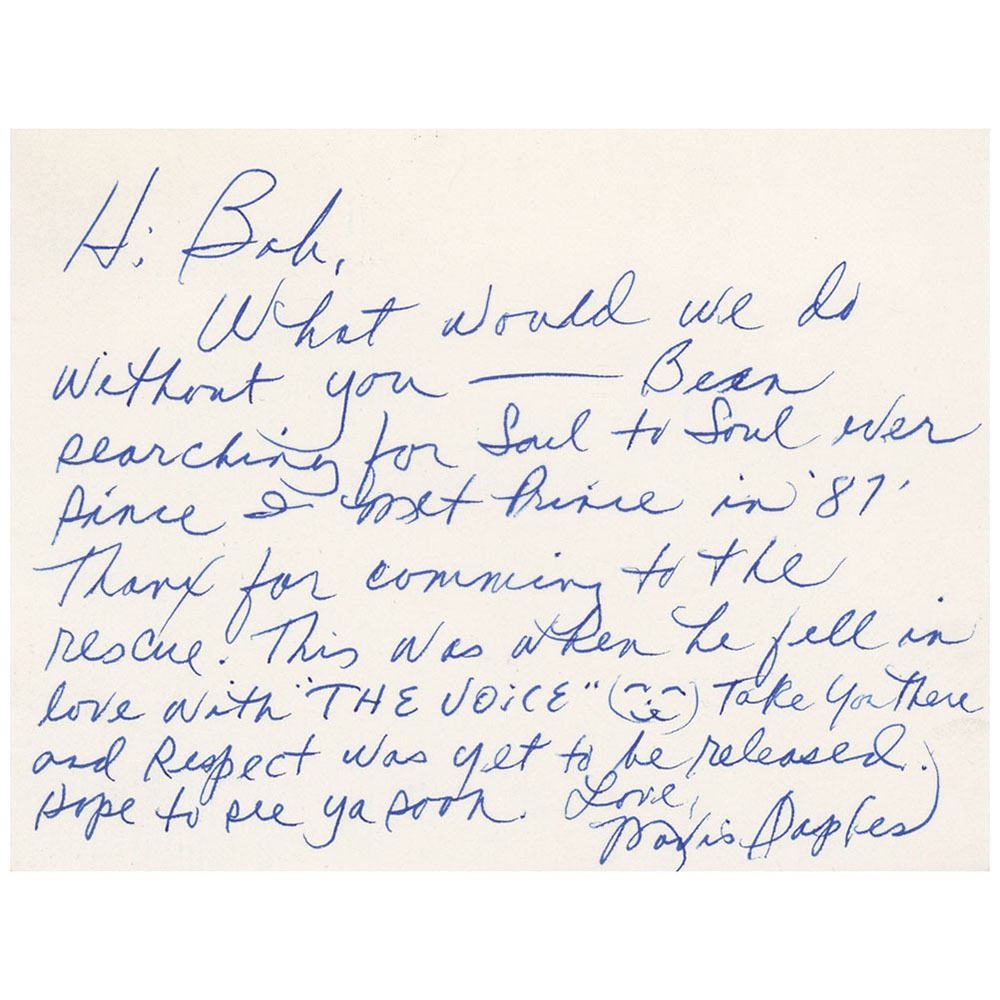 Hi Bob,
What would we do
without you — Been
searching for Soul to Soul ever
since I met Prince in '87'
Thanx for comming to the
rescue. This was when he fell in
love with "THE VOICE" ( Take You There
and Respect was yet to be released.)
Hope to see ya soon. Love,
Mavis Staples